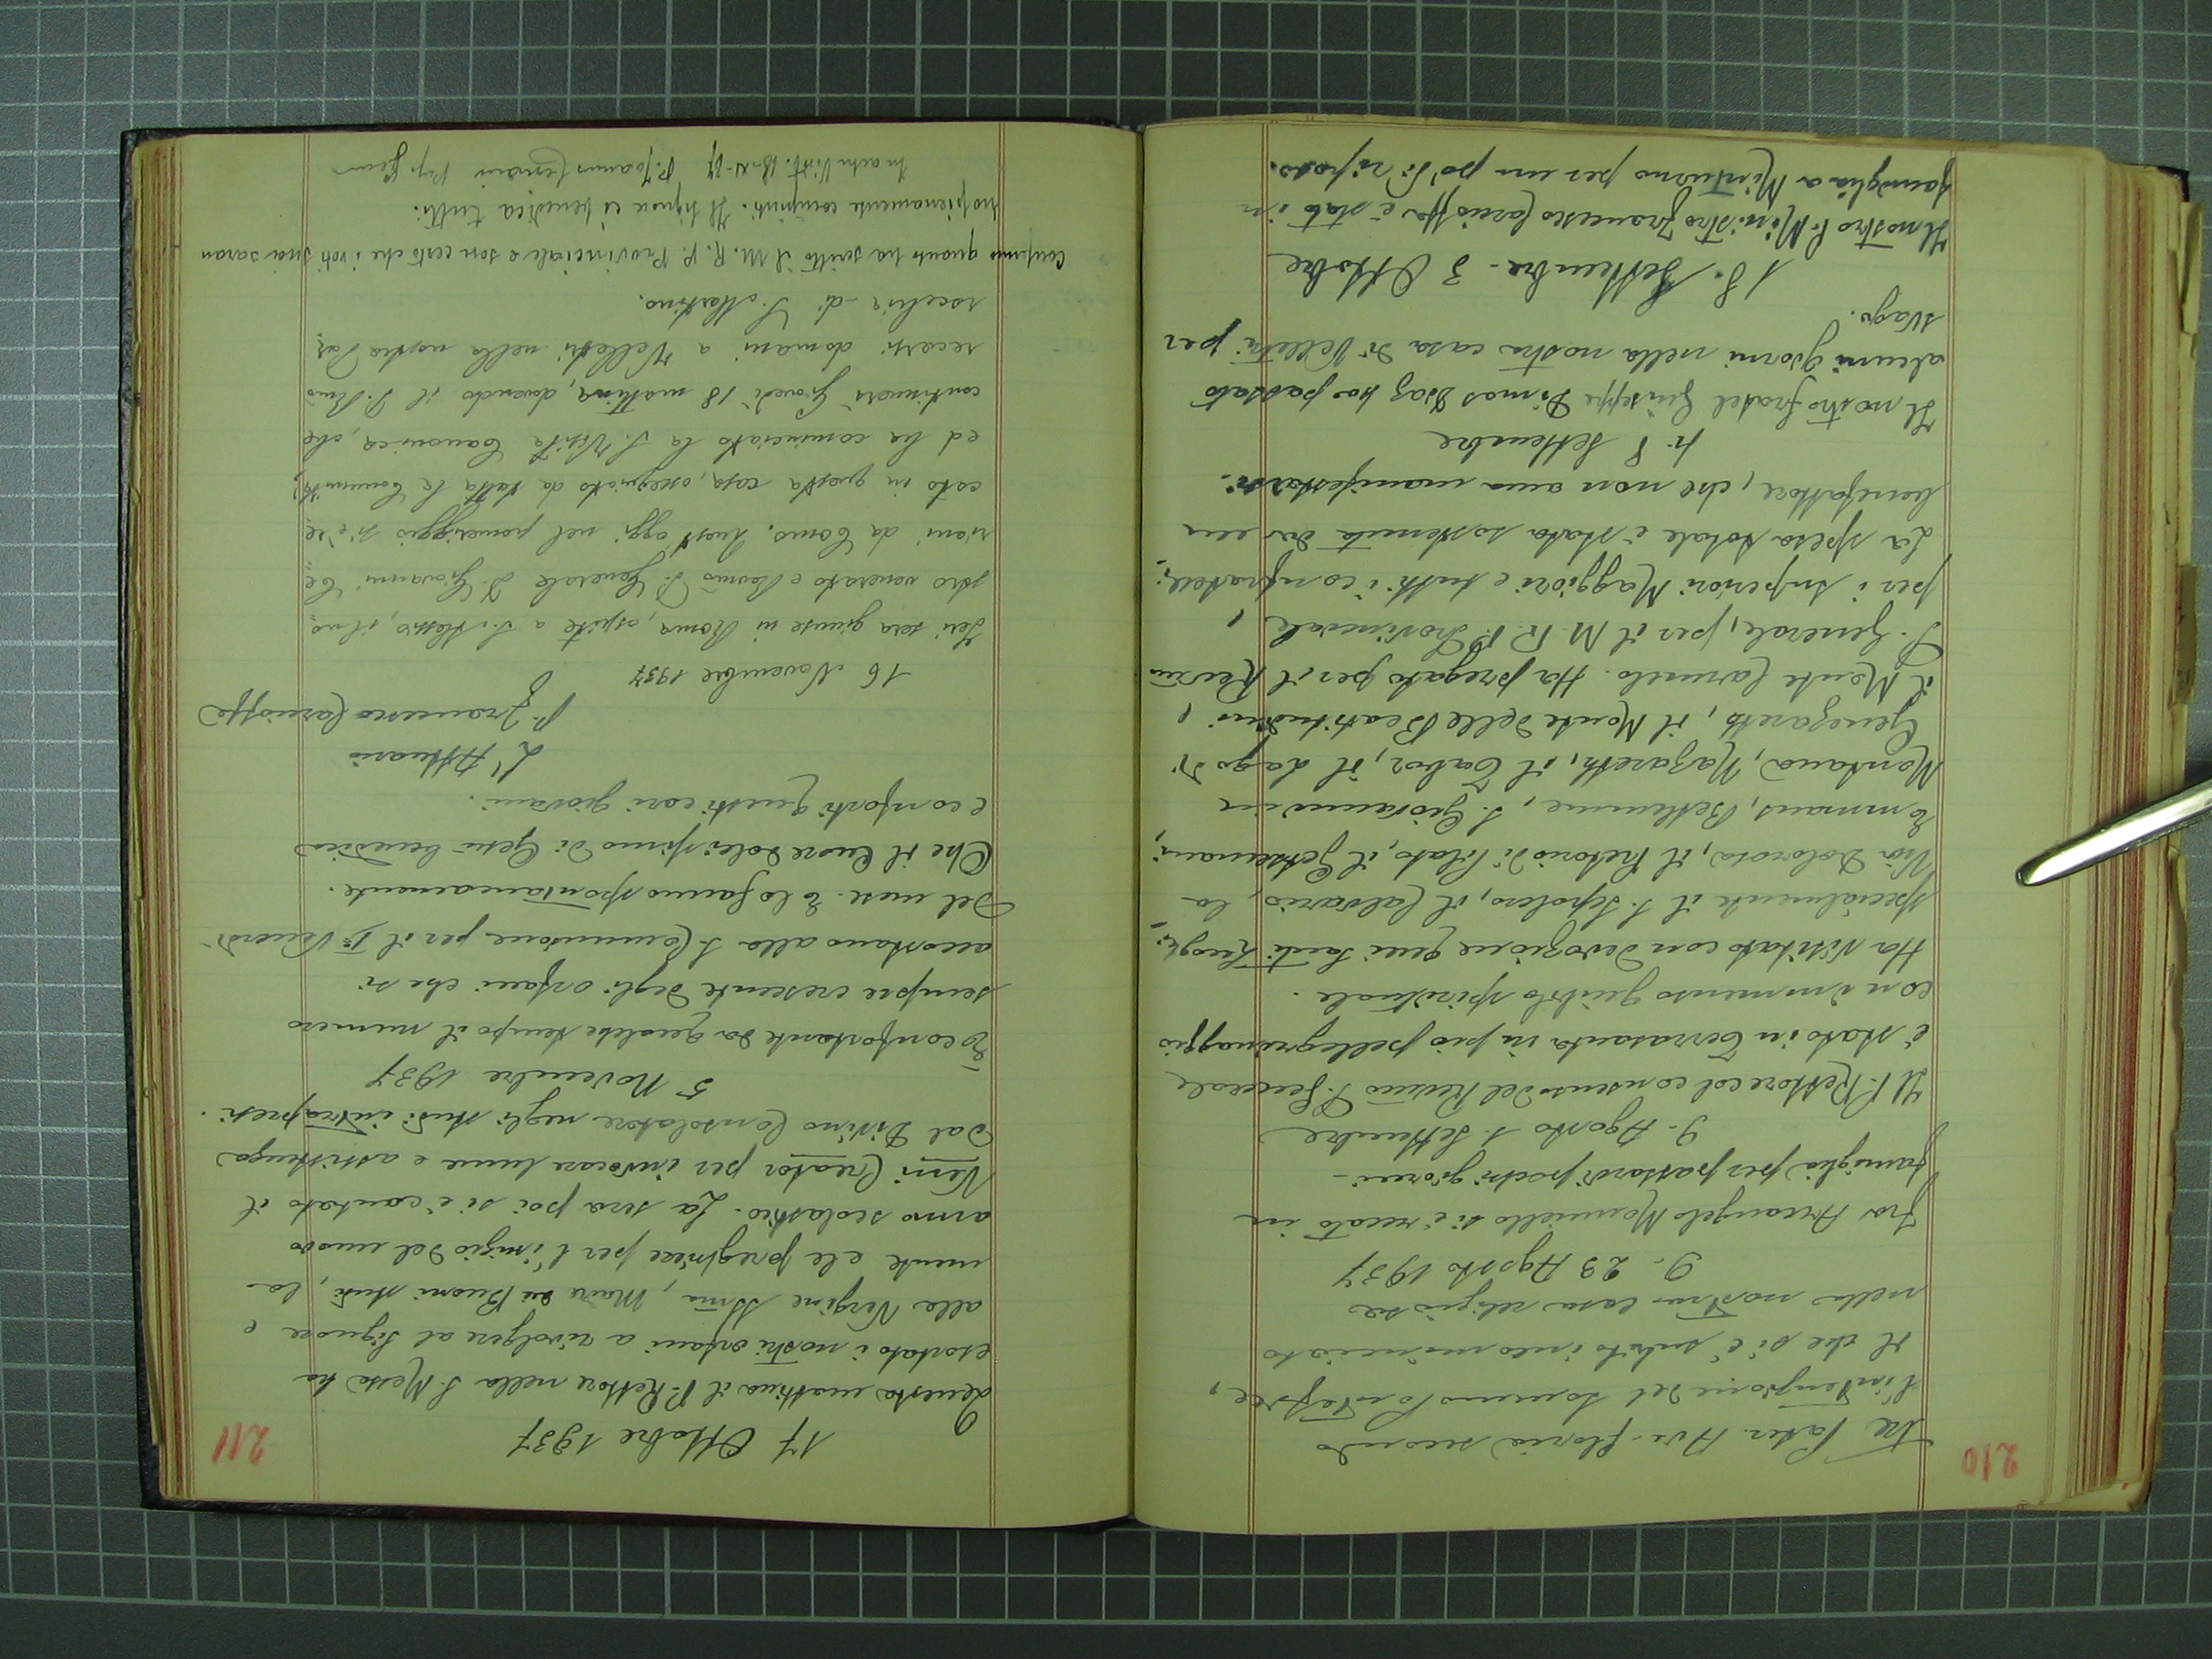 210
tre Pater. Ave. gloria secondo
l'intenzione del Sommo Pontefice,
Il che si è subito incominciato
nella nostra casa religiosa
9. 23 Agosto 1937
Fra Arcangelo Monniello si è recato in
famiglia per passarvi pochi giorni -
9. Agosto 1. Settembre
Il P. Rettore col consenso del Revmo P. Generale
è stato in Terrasanta in pio pellegrinaggio
con immenso giubilo spirituale.
Ha visitato con devozione quei Santi Luoghi,
specialmente il S. Sepolcro, il Calvario, la
Via Dolorosa, il Pretorio di Pilato, il Getsemani,
Emmaus, Betlemme, S. Giovanni in
Montana, Nazareth, il Tabor, il Lago di
Genezareth, il Monte delle Beatitudini,
il Monte Carmelo. Ha pregato per il Revmo
P. Generale, per il M. R. P. Provinciale,
per i superiori Maggiori e tutti i confratelli,
La spesa totale è stata sostenuta da un
benefattore, che non ama manifestarsi.
4. 8 Settembre
Il nostro fratel Giuseppe Dimas Diaz ha passato
alcuni giorni nella nostra casa di Velletri per
svago.
18. Settembre - 3 Ottobre
Il nostro P. Ministro Francesco Carioffa è stato in
famiglia a Minturno per un po' di riposo.
211
17 Ottobre 1937
Questa mattina il P. Rettore nella S. Messa ha
esortato i nostri orfani a rivolgere al Signore e
alla Vergine SSma, Madre dei Buoni studi, la
mente e le preghiere per l'inizio del nuovo
anno scolastico. La sera poi si è cantato il
Veni Creator per invocare lume e assistenza
dal Divino Consolatore negli studi intrapresi.
5 Novembre 1937
È confortante da qualche tempo il numero
sempre crescente degli orfani che si
accostano alla S. Comunione per il I° Venerdì
del mese. E lo fanno spontaneamente.
Che il Cuore Dolcissimo di Gesù benedica
e conforti questi cari giovani.
L'Attuario
P. Francesco Carioffa
16 Novembre 1937
Ieri sera giunse in Roma, ospite a S. Alessio, il no=
stro venerato e Revmo P. Generale D. Giovanni Ce=
riani da Como. Quest'oggi nel pomeriggio si è re=
cato in questa casa, ossequiato da tutta la Comunità,
ed ha cominciato la S. Visita Canonica, che
continuerà Giovedì 18 mattina, dovendo il P. Revmo
recarsi domani a Velletri nella nostra Par=
rocchia di S. Martino.
Confermo quanto ha scritto il M. R. P. Provinciale e son certo che i voti suoi saran
no pienamente compiuti. Il Signore ci benedica tutti.
In actu Visit. 18-XI-37 P. Joannes Ceriani Prep. Gen